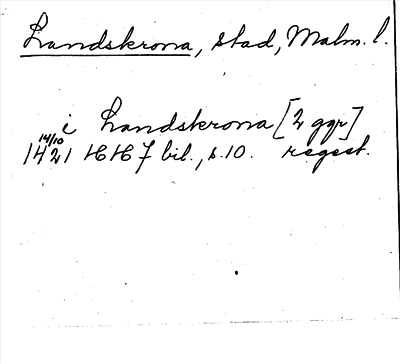 Landskrona, stad, Malm. l.
i Landskrona [2 ggr]
14/10
1421 HH 7 bil., s. 10. regest.